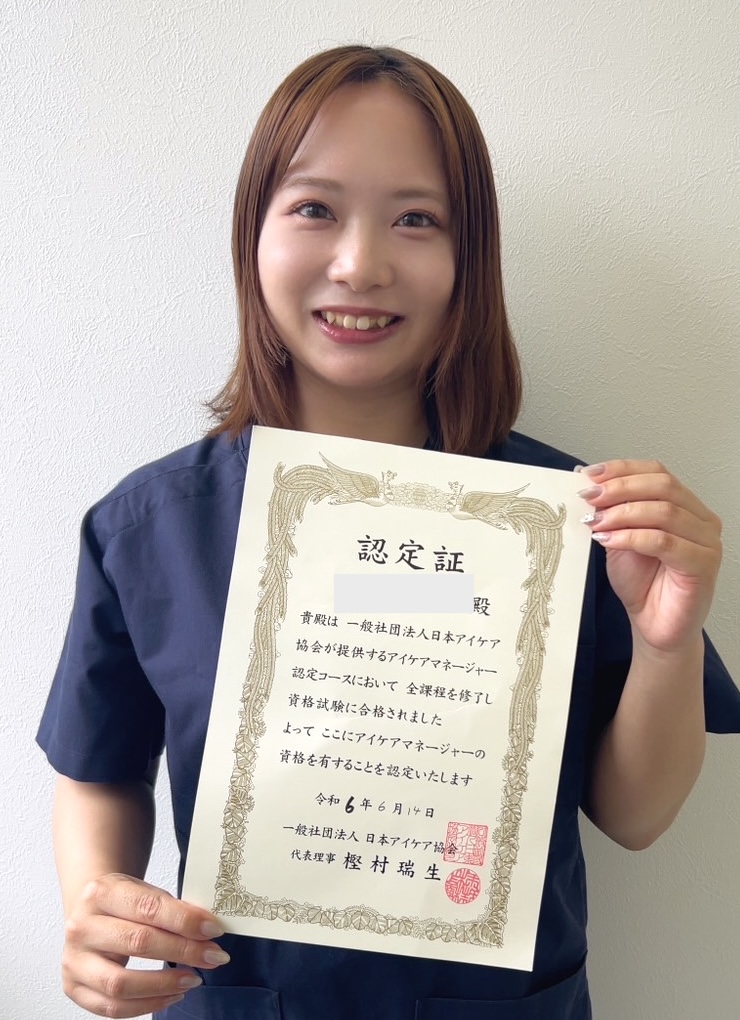 認定証
殿
貴殿は 一般社団法人日本アイケア
協会が提供するアイケアマネージャー
認定コースにおいて 全課程を修了し
資格試験に合格されました
よって ここにアイケアマネージャーの
資格を有することを認定いたします
令和6年6月14日
一般社団法人 日本アイケア協会
代表理事 樫村瑞生